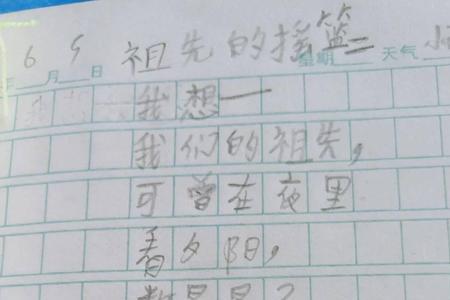 6月9日 祖先的摇篮 星期二 天气
我想——
我们的祖先，
可曾在夜里
看夕阳，
数星星？